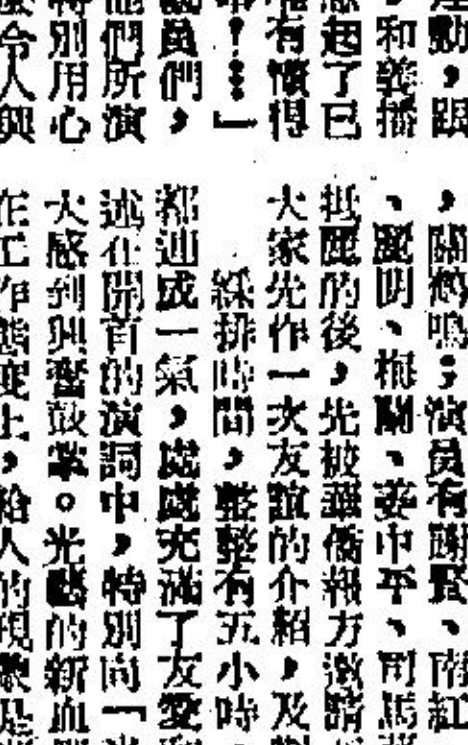 動，跟
，和義播
起了已
有懂得
！…」
員們，
他們所演
特別用心
令人興
，關鶴鳴；演員有謝賢、南紅
、麗明、梅蘭、姜中平、司馬
抵的後，先被華僑報方邀請
大家先作一次友誼的介紹，及
綵排時間，整整有五小時，
都連成一氣，處處充滿了友愛和
述在開首的演詞中，特別向「
大感到興奮鼓掌。光藝的新血
在工作態度上，給人的現象是